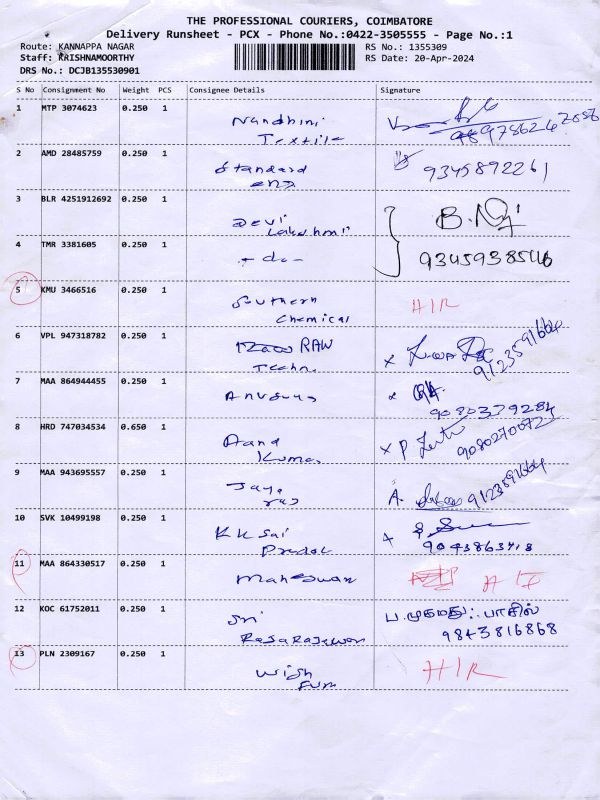 THE PROFESSIONAL COURIERS, COIMBATORE
Delivery Runsheet - PCX - Phone No.:0422-3505555 - Page No.:1
Route: KANNAPPA NAGAR
RS No.: 1355309
Staff: KRISHNAMOORTHY
RS Date: 20-Apr-2024
DRS No.: DCJB135530901
S No Consignment No Weight PCS Consignee Details Signature
1 MTP 3074623 0.250 1
Nandhini
Textile
2 AMD 28485759 0.250 1
Standard
9345892261
3 BLR 4251912692 0.250 1
Devi
Lakshmi
4 TMR 3381605 0.250 1
- do -
9345938546
5 KMU 3466516 0.250 1
Southern
Chemical
H I R
6 VPL 947318782 0.250 1
RAW
Techn
9123591664
7 MAA 864944455 0.250 1
9080379284
8 HRD 747034534 0.650 1
Aand
Kumar
9080270072
9 MAA 943695557 0.250 1
Jaya
raj
9123591664
10 SVK 10499198 0.250 1
KK Sai
9043863413
11 MAA 864330517 0.250 1
Maheswar
12 KOC 61752011 0.250 1
Sri
Rajarajeswari
9843816868
13 PLN 2309167 0.250 1
Wish
Furn
H I R